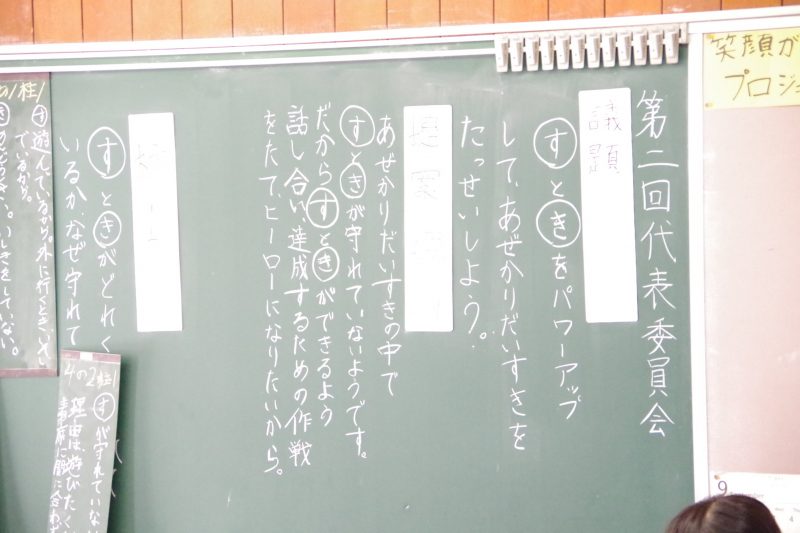 笑顔が
プロジェ
第二回代表委員会
議題
すときをパワーアップ
して、あぜかりだいすきを
たっせいしよう。
提案理由
あぜかりだいすきの中で
すときが守れていないようです。
だからすときができるよう
話し合い、達成するための作戦
をたて、ヒーローになりたいから。
すときがどれく
いるか、なぜ守れて
4の2
すが守れていない
理由は、遊びたく
す遊んでいるから。外に行くとき、
ているから。
9
4